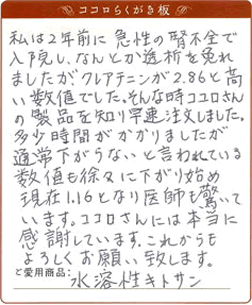 ココロらくがき板
私は2年前に急性の腎不全で
入院し、なんとか透析を免れ
ましたが、クレアチニンが2.86と高
い数値でした。そんな時ココロさん
の製品を知り早速注文しました。
多少時間がかかりましたが
通常下がらないと言われている
数値も徐々に下がり始め
現在1.16となり医師も驚いて
います。ココロさんには本当に
感謝しています。これからも
よろしくお願い致します。
ご愛用商品:
水溶性キトサン